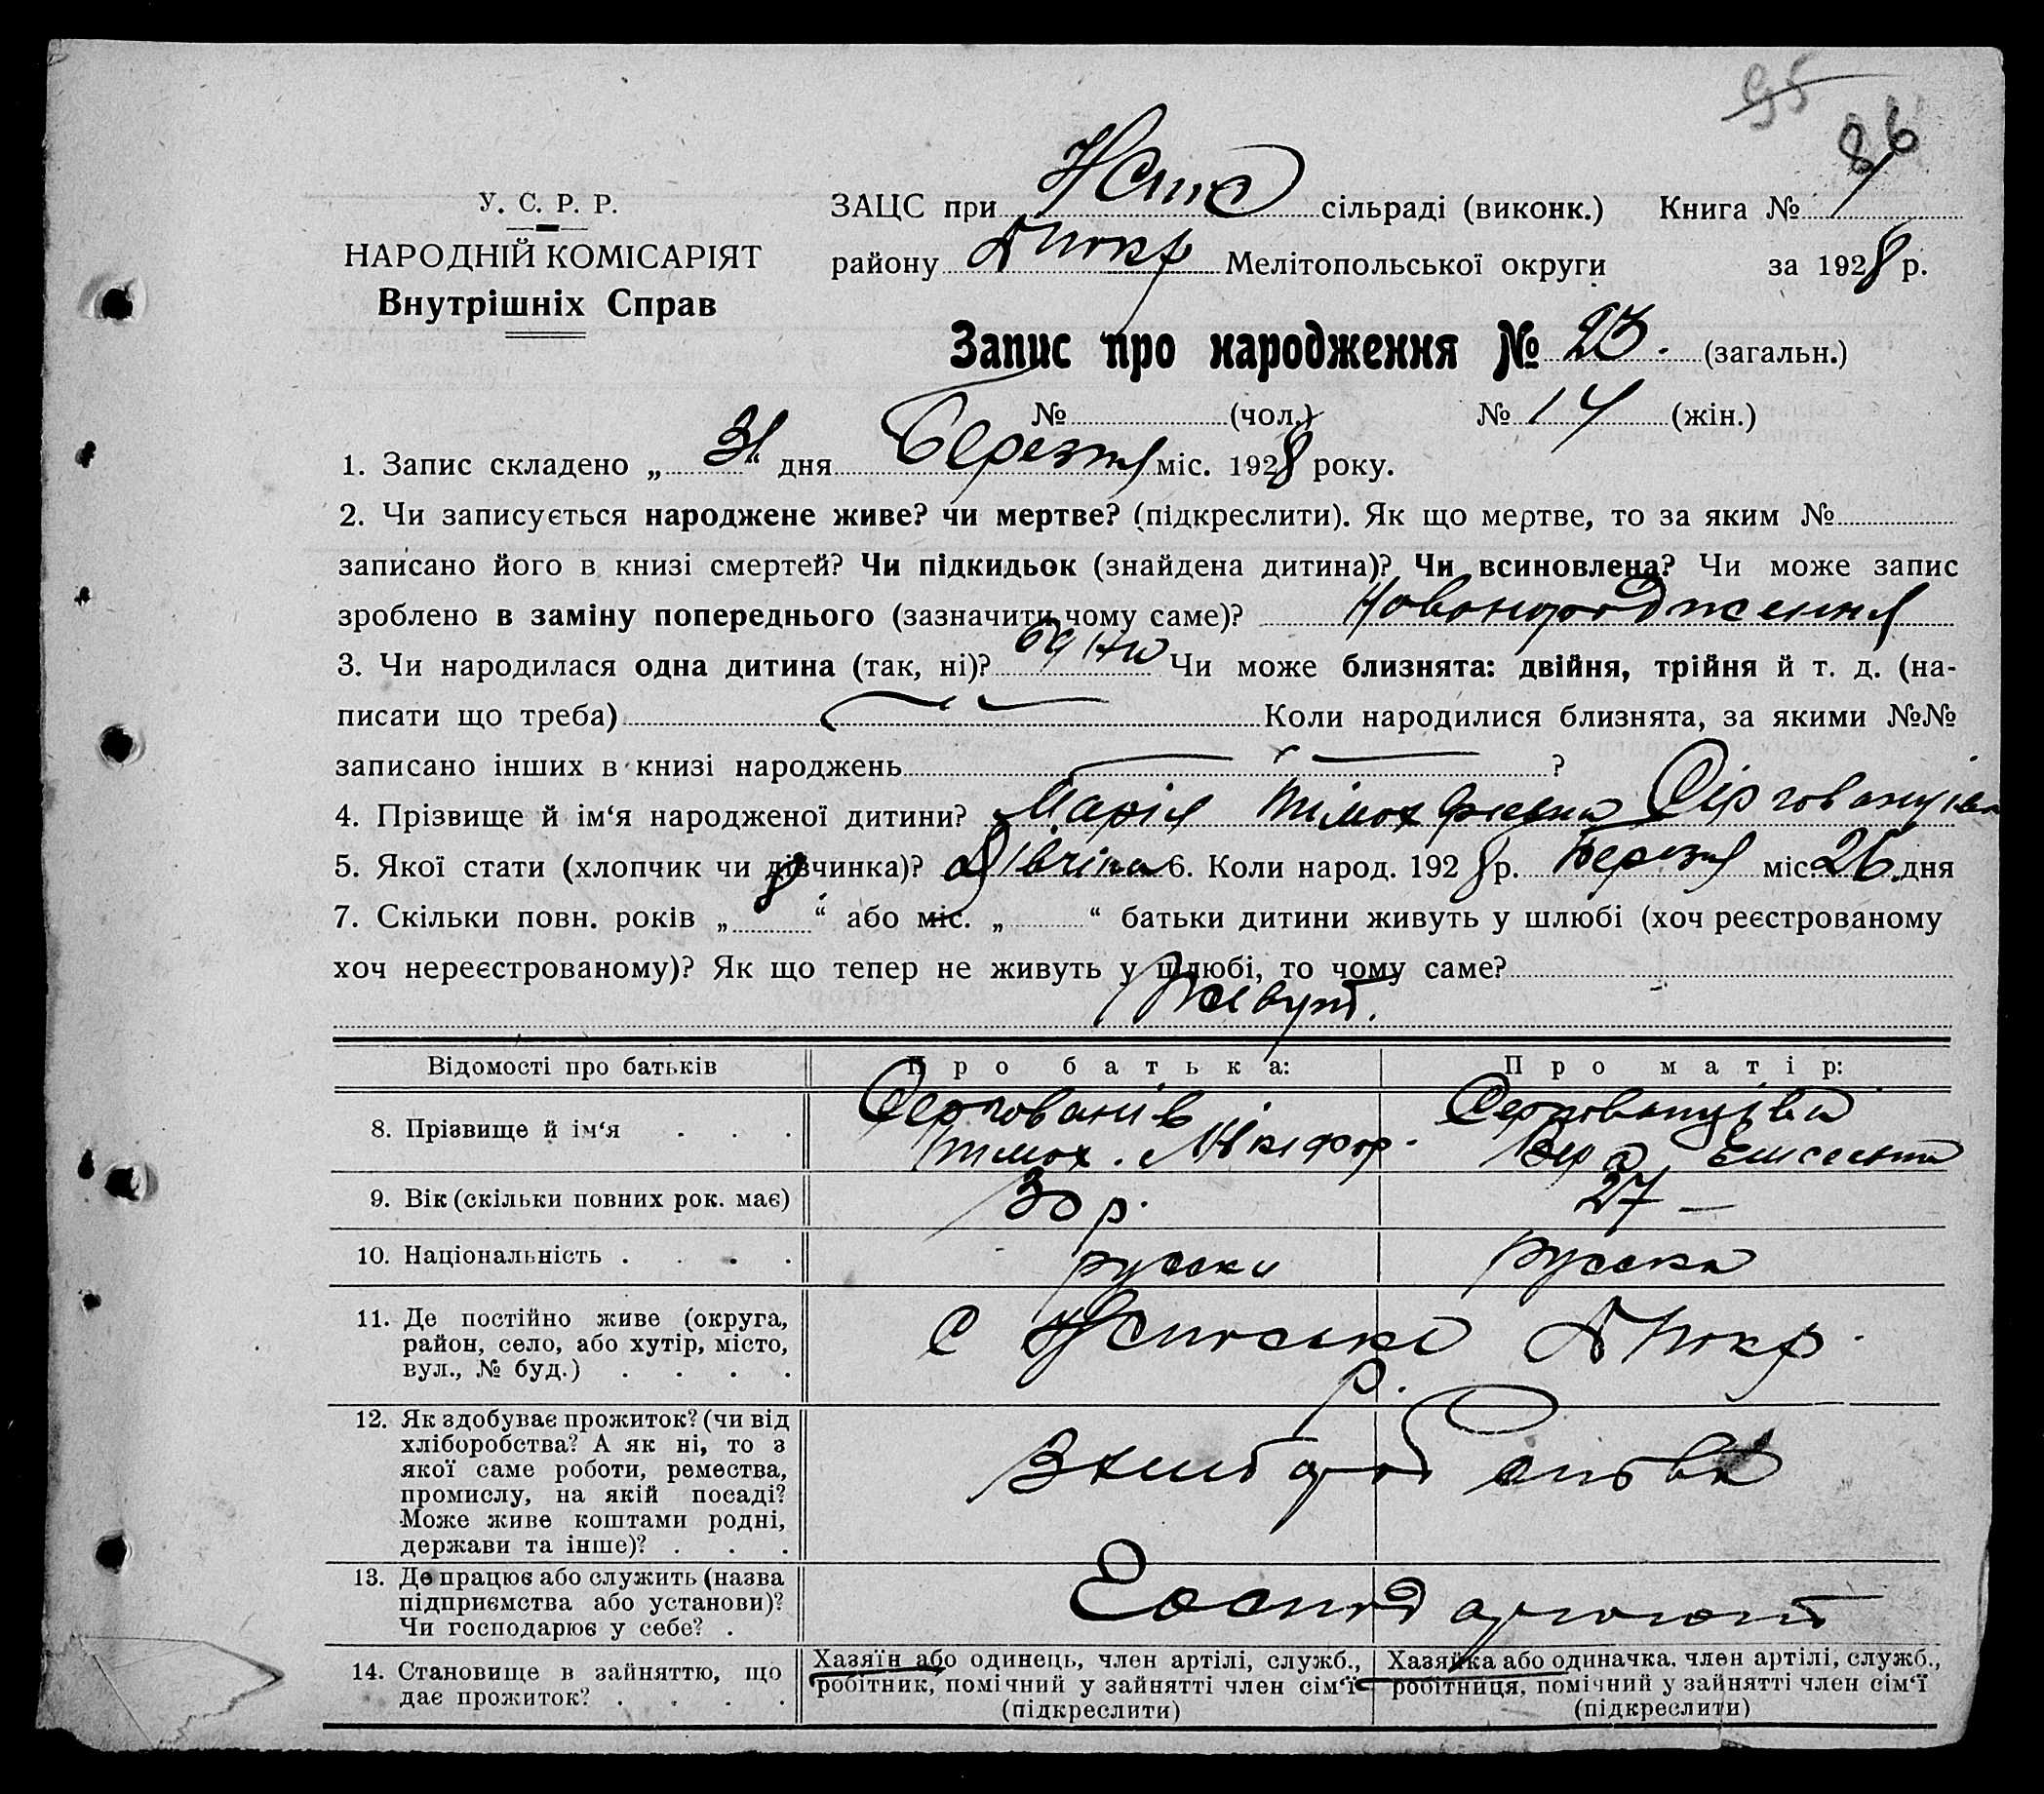 95
86
У. С. Р. Р.
НАРОДНІЙ КОМІСАРІЯТ
Внутрішніх Справ
ЗАЦС при сільраді (виконк.) Книга № 1
району Мелітопольської округи за 1928 р.
Запис про народження № 23. (загальн.)
№ (чол.) № 14 (жін.)
1. Запис складено „ 31 “ дня Березня міс. 1928 року.
2. Чи записується народжене живе? чи мертве? (підкреслити). Як що мертве, то за яким №
записано його в книзі смертей? Чи підкидьок (знайдена дитина)? Чи всиновлена? Чи може запис
зроблено в заміну попереднього (зазначити чому саме)? Новонородження
3. Чи народилася одна дитина (так, ні)? Чи може близнята: двійня, трійня й т. д. (на-
писати що треба) Коли народилися близнята, за якими №№
записано інших в книзі народжень ?
4. Прізвище й ім‘я народженої дитини? Марія
5. Якої стати (хлопчик чи дівчинка)? Дівчіна 6. Коли народ. 1928 р. Березня міс. 26 дня
7. Скільки повн. років „ 8 “ або міс. „ “ батьки дитини живуть у шлюбі (хоч реєстрованому
хоч нереєстрованому)? Як що тепер не живуть у шлюбі, то чому саме?
Живут.
Відомості про батьків Про батька: Про матір:
8. Прізвище й ім‘я Тімох. Нікіфор. Вера
9. Вік (скільки повних рок. має) 30 р. 27 —
10. Національність русски русска
11. Де постійно живе (округа,
район, село, або хутір, місто,
вул., № буд.)
с
р.
12. Як здобуває прожиток? (чи від
хліборобства? А як ні, то з
якої саме роботи, ремества,
промислу, на якій посаді?
Може живе коштами родні,
держави та інше)?
13. Де працює або служить (назва
підприємства або установи)?
Чи господарює у себе?
Господарюют
14. Становище в зайняттю, що
дає прожиток?
Хазяїн або одинець, член артілі, служб.,
робітник, помічний у зайнятті член сім‘ї
(підкреслити)
Хазяйка або одиначка, член артілі, служб.,
робітниця, помічний у зайнятті член сім‘ї
(підкреслити)